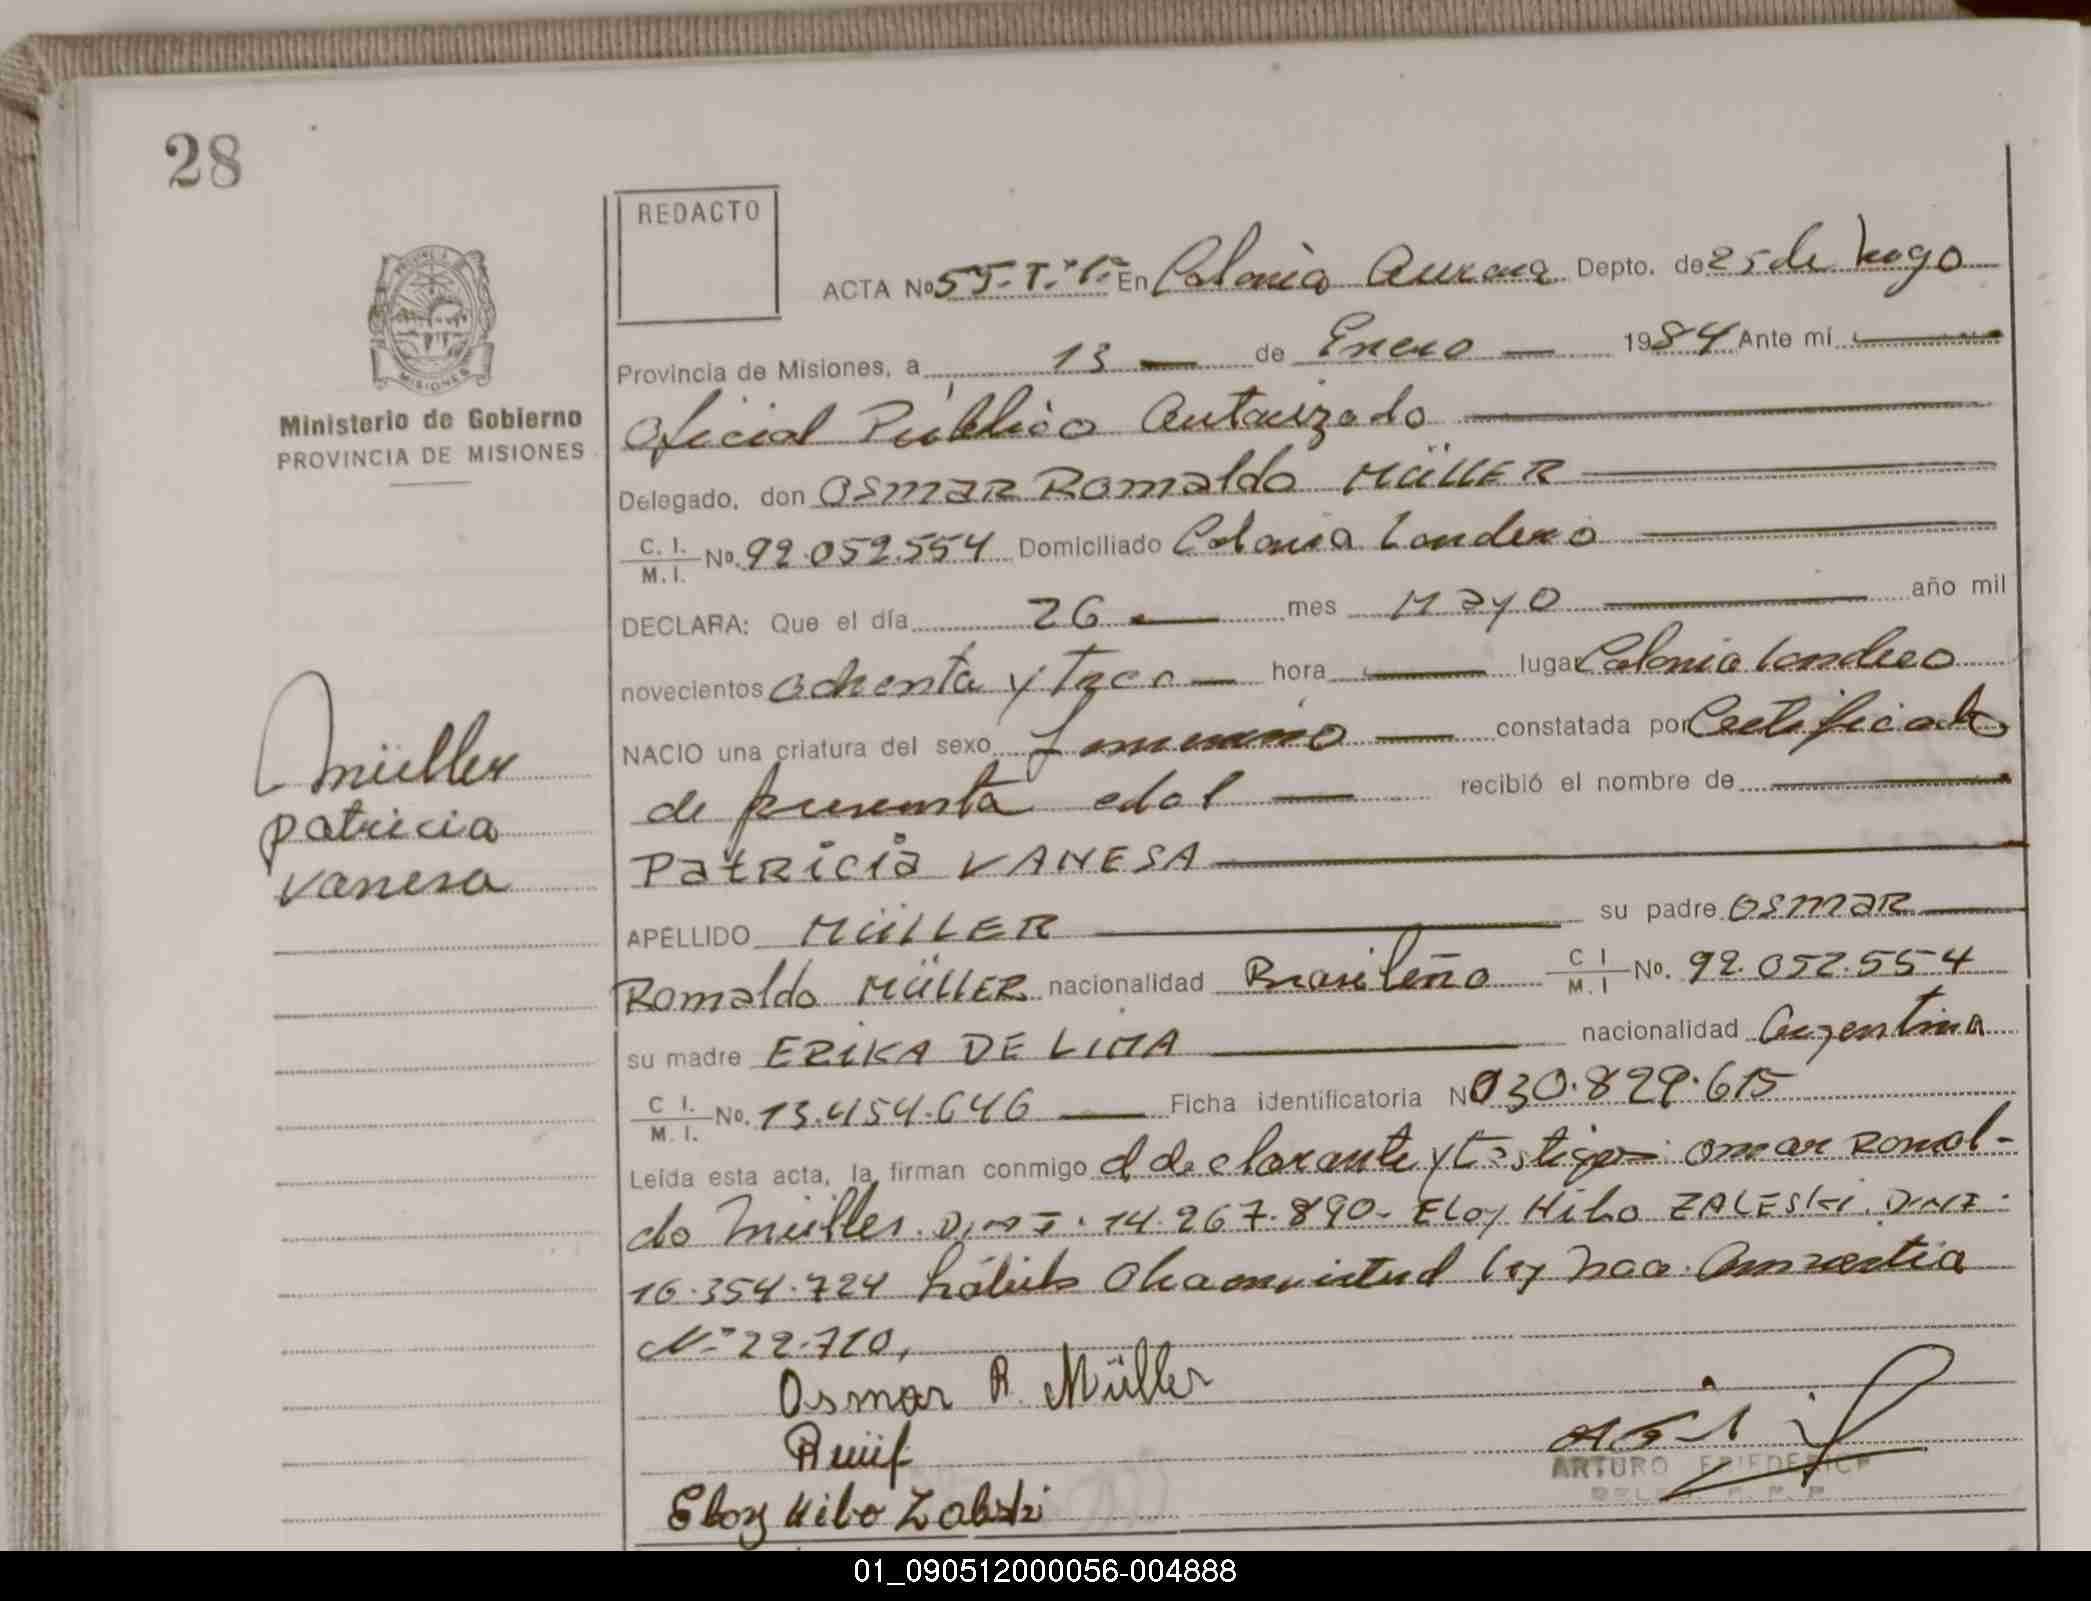 28
REDACTO
ACTA No 55.T.1º. En Colonia Aurora Depto. de 25 de Mayo
Provincia de Misiones, a 13 de Enero 1984 Ante mí
Ministerio de Gobierno
PROVINCIA DE MISIONES
Oficial Público Autorizado
Delegado, don OSMAR Romaldo MÜLLER
C. I.
M. I. No. 92.052.554 Domiciliado Colonia Londero
DECLARA: Que el día 26 mes Mayo año mil
novecientos ochenta y tres hora lugar Colonia Londero
NACIO una criatura del sexo femenino constatada por Certificado
de presunta edad recibió el nombre de
PATRICIA VANESA
Müller
patricia
vanesa
APELLIDO MÜLLER su padre OSMAR
Romaldo MÜLLER nacionalidad Brasileño C I
M. I No. 92.052.554
su madre ERIKA DE LIMA nacionalidad Argentina
C I.
M. I. No. 13.454.646 Ficha identificatoria No 30.829.615
Leída esta acta, la firman conmigo el declarante y testigos: Omar Romal-
do Müller. D.N.I. 14.267.890- Eloy Hilo ZALESKI. D.N.I:
16.354.724 hábiles Ley Nac. Amnistia
Nº 22.710,
Osmar R. Müller
Eloy Hilo Zaleski
ARTURO FRIEDERICH
01_090512000056-004888